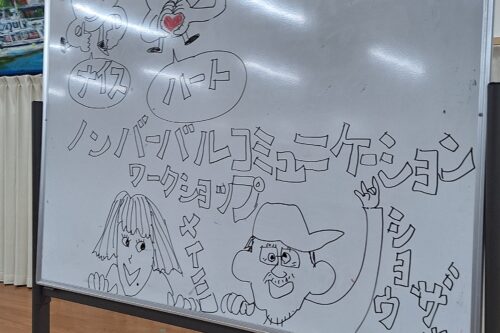 ナイス
ハート
ノンバーバルコミュニケーション
ワークショップ
メイミ
ショウザ